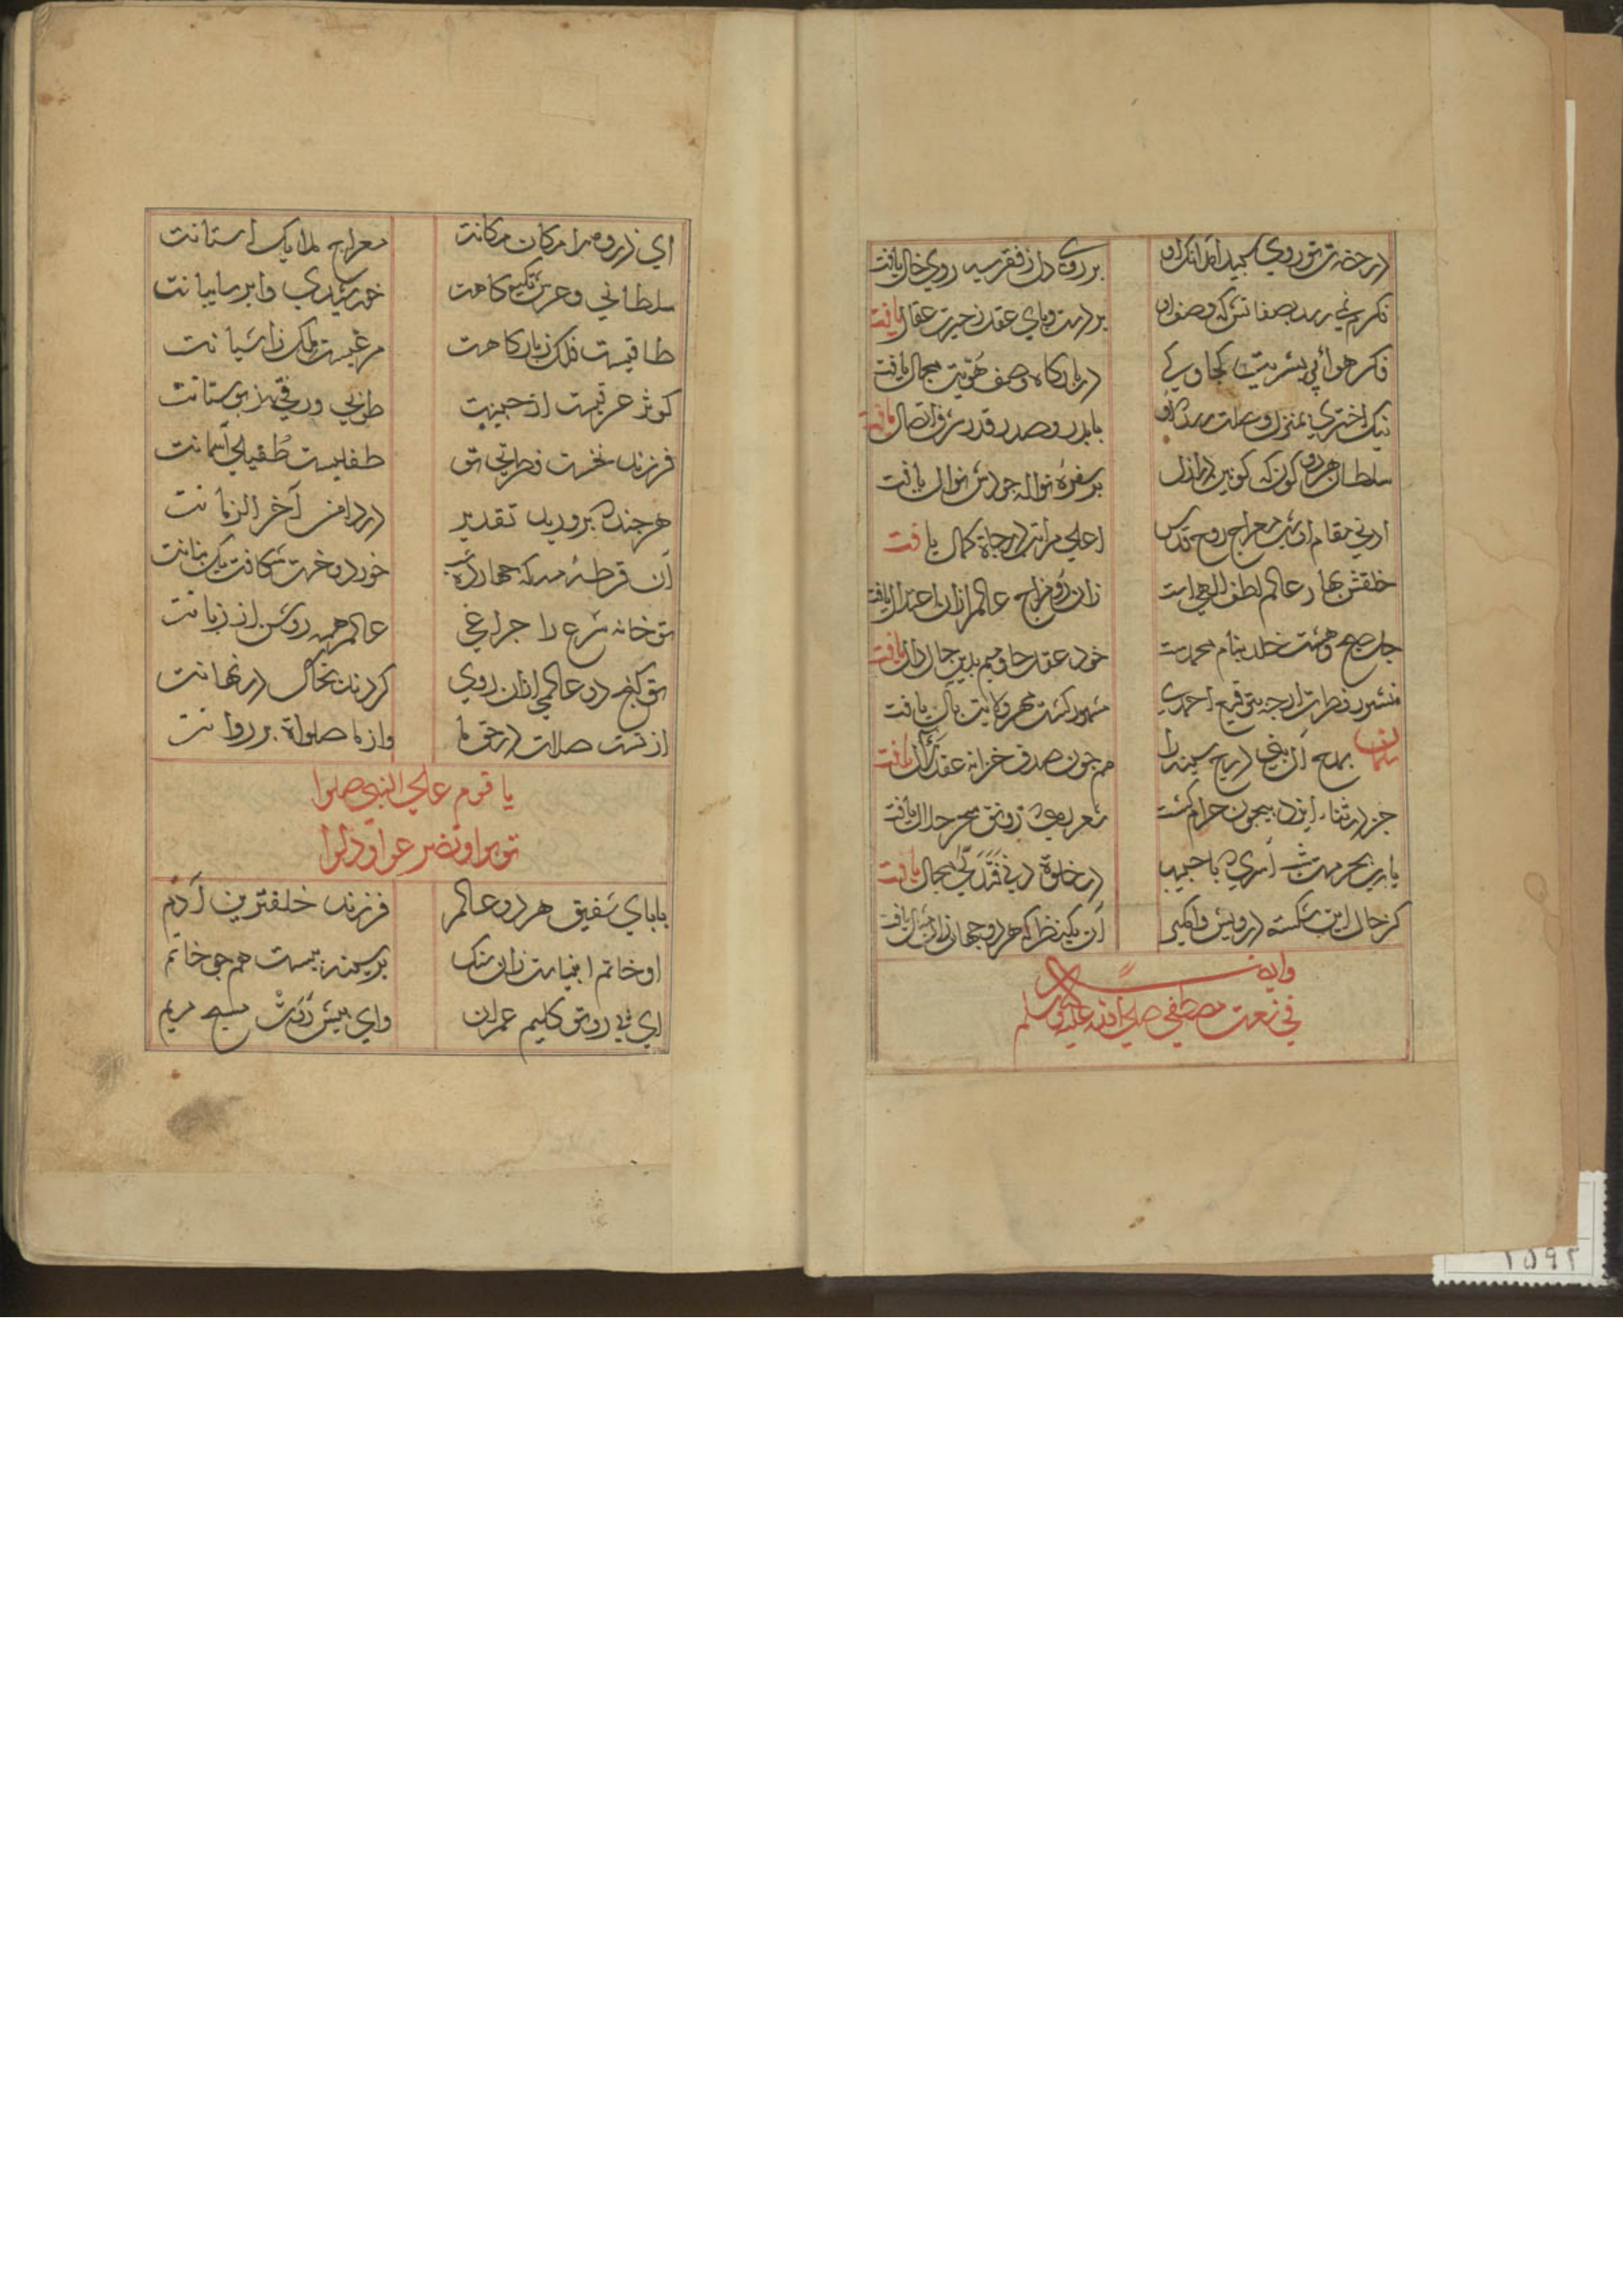 در حضرتش توروی سپید آمد آنک او بر روی دل ز فقر سیه روی خال یافت
فکرم نمی رسد بصفاتش که وصف او بر دست و پای عقل ز حیرت عقال یافت
فکر هوائی بشریت کجا و کی در بارکاه وصف هویت مجال یافت
نیک اختری بمنزل وصلت رسد کاو با بدر و صدر قدر شرف اتصال یافت
سلطان هر دو کون که کونین در ازل بر سفره نواله جودش نوال یافت
ادنی مقام او شب معراج روح قدس اعلی مراتب درجاة کمال یافت
خلقش بهار عالم لطف الهی است زان رو مزاج عالم ازان اعتدال یافت
جان حی وهشت خلد بنام محمدست خود عقد حا و میم بدین جا دال یافت
منشور فطرت ارجه بتوقیع احمدی مشهور کشت مهر ولایت بآل یافت
سلمان بمدح آل نبی درج سینه را هم جون صدف خزانه عقد لآل یافت
جز در ثناء ایزد بیچون حرام کشت شعر بدیع رونق سحر حلال یافت
یا رب بحرمت شب اسری که با حبیب در خلوة دنی فتدلی مجال یافت
کز حال این شکسته درویش وامکیر آن یک نظر که هر دو جهان زان منال یافت
وایه
فی نعت مصطفی صلی الله علیه وسلم
ای ذروه لامکان مکانت معراج ملایک آستانت
سلطانی و عرش تکیه کاهت خورشیدی و ابر سایبانت
طاقیست فلک ز بارکاهت مرغیست ملک ز آشیانت
کوثر عرقیست از جبینت طوبی ورقی ز بوستانت
فرزند نخست فطرتی تو طفلیست طفیلی آسمانت
هر جند که پرورید تقدیر در دامن آخر الزمانت
آن قرطه مه که چهارده خورد و خرت شکافت یک بنانت
تو خانه شرع را جراغی عالم همه روشن از زبانت
تو کنج دو عالمی ازان روی کردند بخاک در نهانت
از تست صلات در حق ما واز ما صلواة بر روانت
یا قوم علی النبی صلوا
توبوا وتضرعوا وذلوا
بابای شفیق هر دو عالم فرزند خلفترین آدم
او خاتم انبیاست زان سنک بر سینه ببست هم جو خاتم
ای پی رو تو کلیم عمران وای پیش روت مسیح مریم
۲۵۹۲